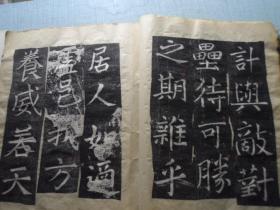 計與敵對
壘待可勝
之期雖乎
居人如過
虛邑我方
養威若天